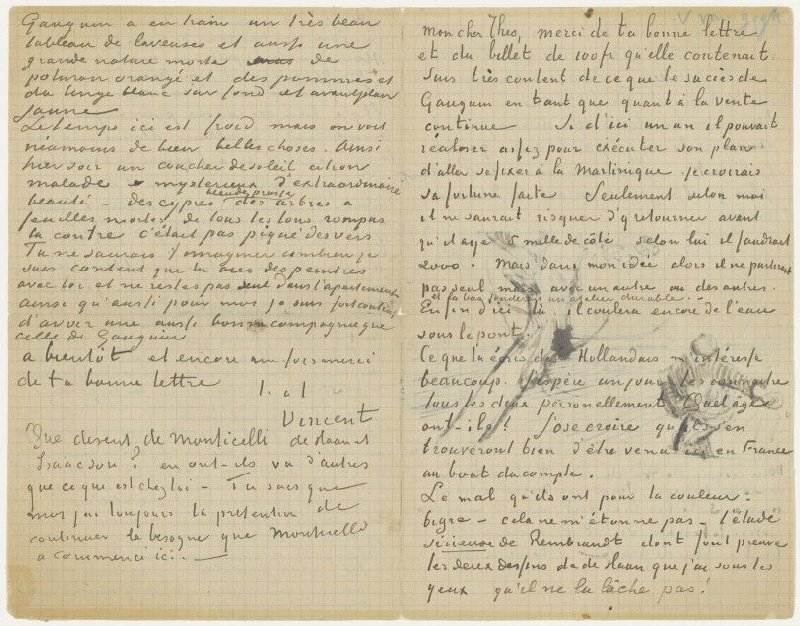 mon cher Theo, merci de ta bonne lettre
et du billet de 100 fr qu'elle contenait.
Suis très content de ce que le succès de
Gauguin en tant que quant à la vente
continue Si d'ici un an il pouvait
réaliser assez pour exécuter son plan
d'aller se fixer à la Martinique je croirais
sa fortune faite Seulement selon moi
il ne saurait risquer d'y retourner avant
qu'il aye 5 mille de côté selon lui il faudrait
2000. Mais dans mon idée alors il ne partirait
pas seul mais avec un autre ou des autres.
et là bas fonderait un atelier durable..
Enfin d'ici là il coulera encore de l'eau
sous le pont.
Ce que tu écris des Hollandais m'intéresse
beaucoup. J'espère un jour les connaitre
tous les deux personnellement Quel âge
ont-ils? J'ose croire qu'ils s'en
trouveront bien d'être venu ici en France
au bout du compte.
Le mal qu'ils ont pour la couleur..
bigre – cela ne m'étonne pas – l'étude
sérieuse de Rembrandt dont font preuve
les deux dessins de de Haan que j'ai sous les
yeux qu'il ne la lâche pas!
Gauguin a en train un très beau
tableau de laveuses et aussi une
grande nature morte de
potiron orangé et des pommes et
du linge blanc sur fond et avantplan
jaune
Le temps ici est froid mais on voit
néamoins de bien belles choses. Ainsi
hier soir un coucher de soleil citron
malade mysterieux d'extraordinaire
beauté – des cyprès bleu de prusse des arbres a
feuilles mortes de tous les tons rompus
là contre c'était pas piqué des vers
Tu ne saurais t'imaginer combien je
suis content que tu aies des peintres
avec toi et ne restes pas seul dans l'appartement
ainsi qu'aussi pour moi je suis fort content
d'avoir une aussi bonne compagnie que
celle de Gauguin
a bientôt et encore une fois merci
de ta bonne lettre
t. à t.
Vincent
Que disent de Monticelli de Haan et
Isaacson? en ont-ils vu d'autres
que ce que est chez toi – Tu sais que
moi j'ai toujours la prétention de
continuer la besogne que Monticelli
a commencé ici. –